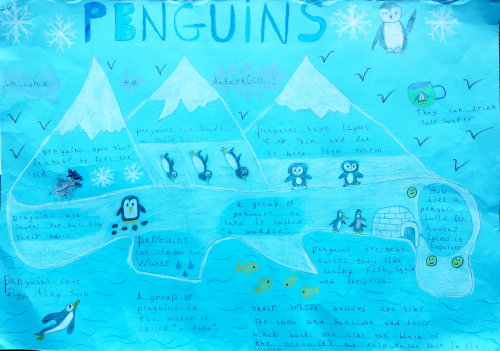 PENGUINS
Welcome to Antartica!
They can drink
salt water
penguins open their
feather to feel the
cold
penguins can slide
on their bellies
penguins have layers
of air, skin and fat
to keep them warm
penguins use
stones for building
their nests
penguins
can snow
water
a group of
penguins on
land is called
"a waddle".
How
does a
penguin
build its
house?
Igloos it
together
penguins are meat
eaters they like
eating fish, squid
and shellfish.
Penguins can't
fly, they swim
A group of
penguins in
the water is
called "a raft".
their white bellies are like
the snow and sunlight and their
black backs are like the black of
the ocean. it's not easy to see them in the
water